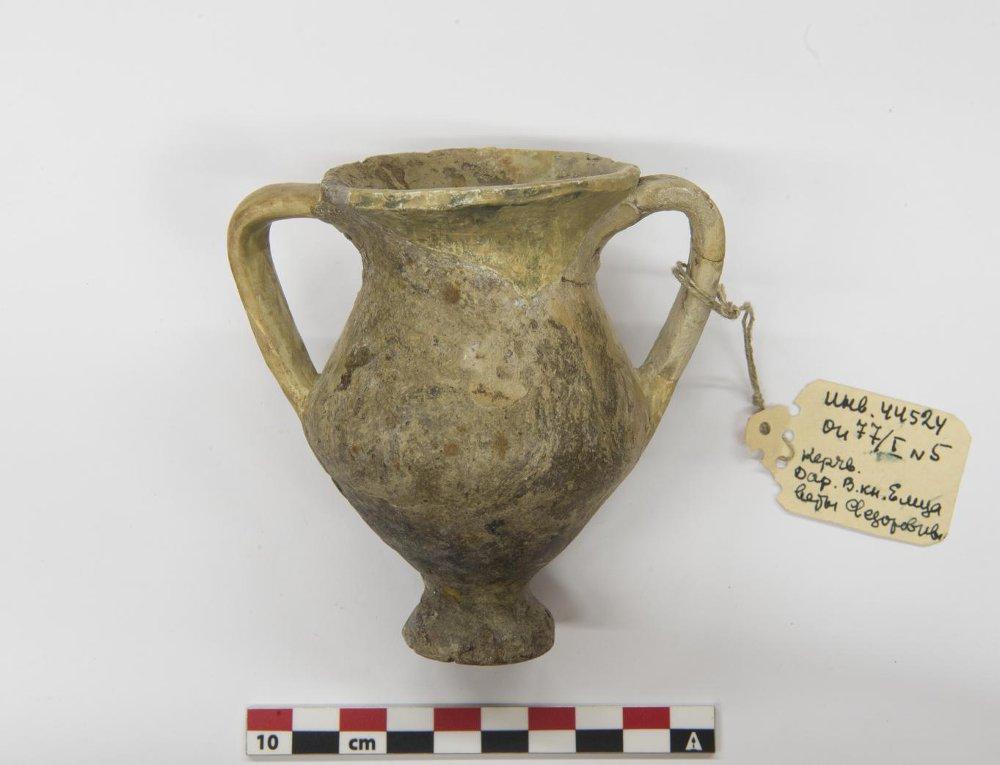 инв. 44524
ОИ 77/I N 5
Керчь.
Дар. В. кн. Елиза
веты Федоровны
10 cm
A